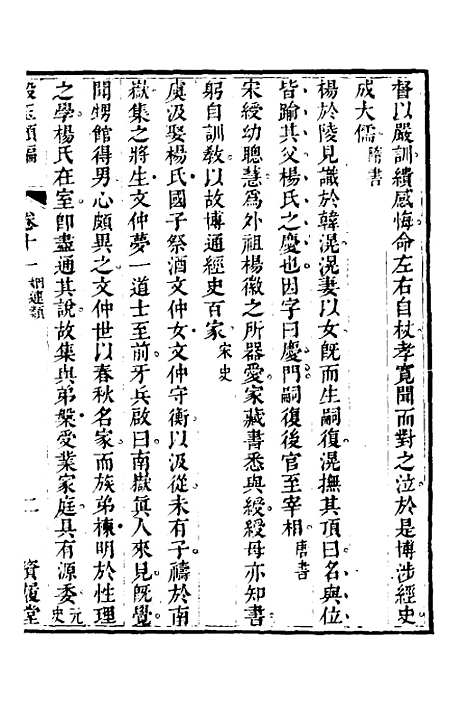 督以嚴訓績感悔命左右自杖孝寬聞而對之泣於是博涉經史
成大儒隋書
楊於陵見識於韓滉滉妻以女旣而生嗣復滉撫其頂曰名與位
皆踰其父楊氏之慶也因字曰慶門嗣復後官至宰相唐書
宋綬幼聰慧爲外祖楊徽之所器愛家藏書悉與綬綬母亦知書
躬自訓教以故博通經史百家宋史
虞汲娶楊氏國子祭酒文仲女文仲守衡以汲從未有子禱於南
嶽集之將生文仲夢一道士至前牙兵啟曰南嶽眞人來見旣覺
聞甥館得男心頗異之文仲世以春秋名家而族弟棟明於性理
之學楊氏在室卽盡通其說故集與弟槃受業家庭具有源委元史
殺玉類編 卷十一 姻連類 二 資履堂